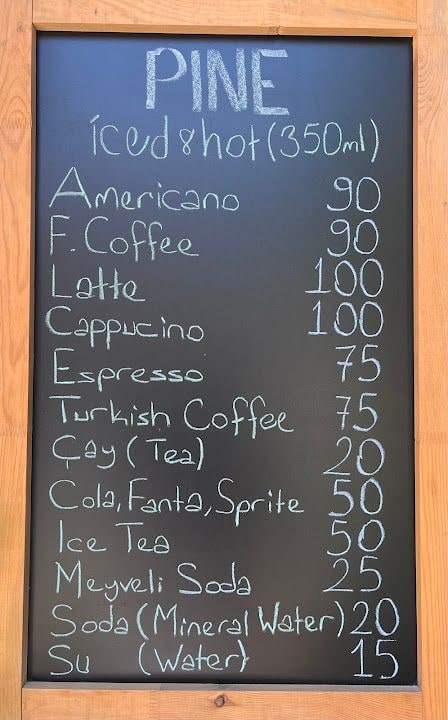 PINE
iced & hot (350ml)
Americano 90
F. Coffee 90
Latte 100
Cappucino 100
Espresso 75
Turkish Coffee 75
Çay (Tea) 20
Cola, Fanta, Sprite 50
Ice Tea 50
Meyveli Soda 25
Soda (Mineral Water) 20
Su (Water) 15